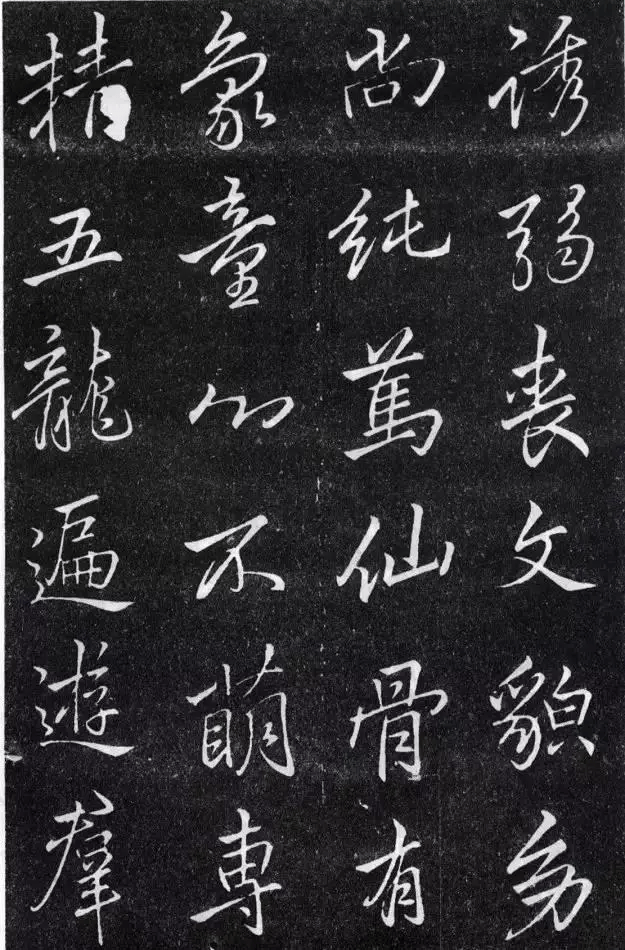 誘弱喪文貌幼
尚純篤仙骨有
象童心不萌專
精五龍遍遊羣